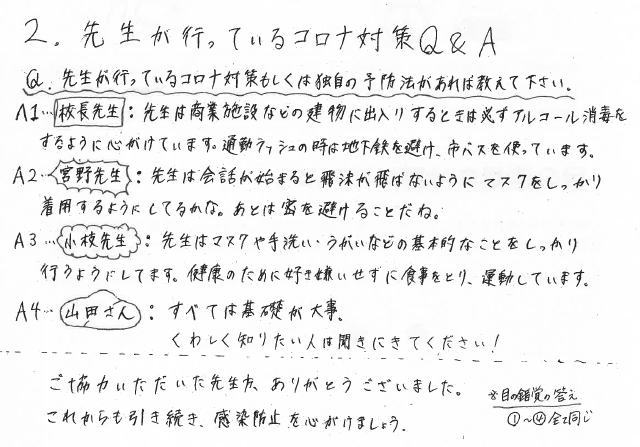 2. 先生が行っているコロナ対策Q&A
Q. 先生が行っているコロナ対策もしくは独自の予防法があれば教えて下さい。
A1…校長先生：先生は商業施設などの建物に出入りするときは必ずアルコール消毒を
するように心がけています。通勤ラッシュの時は地下鉄を避け、市バスを使っています。
A2…宮野先生：先生は会話が始まると飛沫が飛ばないようにマスクをしっかり
着用するようにしてるかな。あとは密を避けることだね。
A3…小枝先生：先生はマスクや手洗い・うがいなどの基本的なことをしっかり
行うようにしてます。健康のために好き嫌いせずに食事をとり、運動しています。
A4…山田さん：すべては基礎が大事。
くわしく知りたい人は聞きにきてください！
ご協力いただいた先生方、ありがとうございました。
これからも引き続き、感染防止を心がけましょう。
※目の錯覚の答え
①～④全て同じ